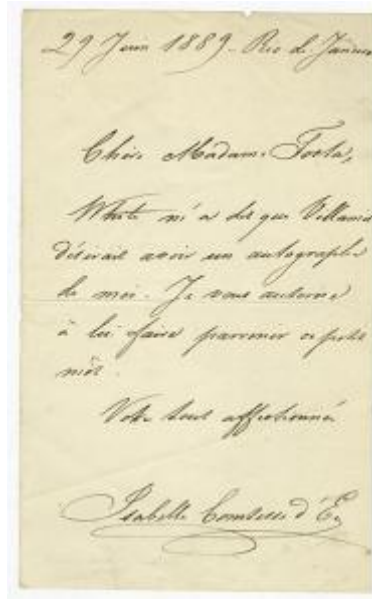 29 Juin 1889 - Rio de Janeiro
Chère Madame Tosta,
White m'a dit que Villamil
désirait avoir un autographe
de moi. Je vous autorise
à lui faire parvenir ce petit
mot.
Votre tout affectionnée
Isabelle Comtesse d'Eu